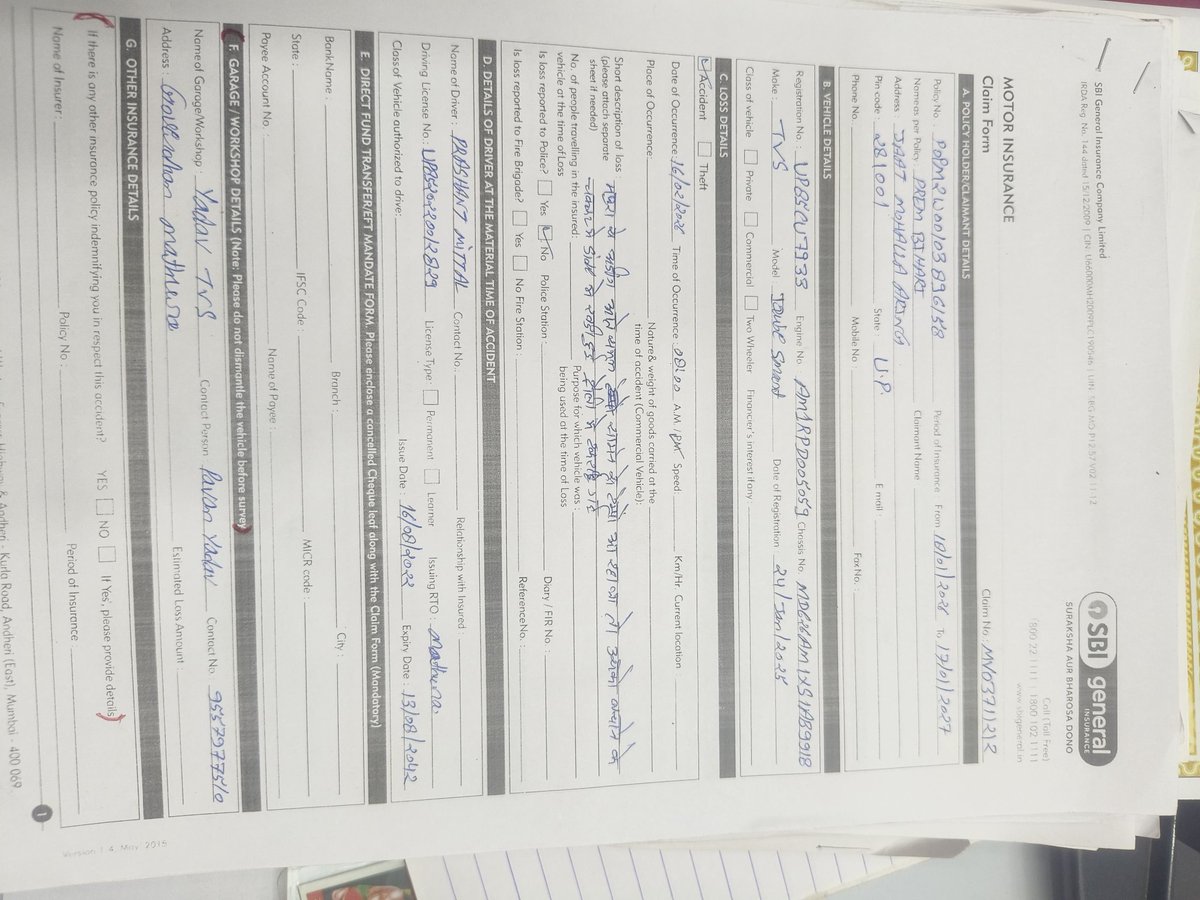 SBI General Insurance Company Limited
IRDA Reg. No. 144 dated 15/12/2009 | CIN: U66000MH2009PLC190546 | UIN: SBG MO P12 57 V02 11-12
SBI general
INSURANCE
SURAKSHA AUR BHAROSA DONO
Call (Toll Free)
1800 22 1111 1800 102 1111
www.sbigeneral.in
MOTOR INSURANCE
Claim Form
Claim No: MV03711212
A. POLICY HOLDER/CLAIMANT DETAILS
Policy No. POPM2W00103896158 Period of Insurance From 18/01/2026 To 17/01/2027
Name as per Policy PREM BIHARI Claimant Name
Address : JAAT MOHALLA ARING
Pin code : 281001 State U.P. E mail :
Phone No. Mobile No Fax No. :
B. VEHICLE DETAILS
Registration No. : UP85CU7933 Engine No. AM1RPD005059 Chassis No.
Make : TVS Model : Date of Registration 24/Jan/2025
Class of vehicle Private Commercial Two Wheeler Financier's interest if any :
C. LOSS DETAILS
Accident Theft
Date of Occurrence 16/02/2026 Time of Occurrence : A.M. / PM Speed Km/Hr. Current location
Place of Occurrence: Nature & weight of goods carried at the
time of accident (Commercial Vehicle):
Short description of loss : मथुरा से आ रहा था तो
(please attach separate में
sheet if needed)
No. of people travelling in the insured: Purpose for which vehicle was :
vehicle at the time of Loss being used at the time of Loss
Is loss reported to Police? Yes No Police Station : Diary / FIR No :
Is loss reported to Fire Brigade? Yes No Fire Station : Reference No. :
D. DETAILS OF DRIVER AT THE MATERIAL TIME OF ACCIDENT
Name of Driver : PRASHANT MITTAL Contact No. Relationship with Insured :
Driving License No. : UP8520220012829 License Type: Permanent Learner Issuing RTO : mathura
Class of Vehicle authorized to drive: Issue Date : 16/08/2022 Expiry Date : 13/08/2042
E. DIRECT FUND TRANSFER/EFT MANDATE FORM. Please enclose a cancelled Cheque leaf along with the Claim Form (Mandatory)
Bank Name : Branch : City :
State : IFSC Code : MICR code :
Payee Account No. Name of Payee :
F. GARAGE / WORKSHOP DETAILS (Note: Please do not dismantle the vehicle before survey)
Name of Garage/Workshop : Yadav TVS Contact Person Pavan Yadav Contact No.
Address : Goverdhan mathura Estimated Loss Amount :
G. OTHER INSURANCE DETAILS
If there is any other insurance policy indemnifying you in respect this accident? YES NO If 'Yes', please provide details
Name of Insurer : Policy No : Period of Insurance
Highway & Andheri - Kurla Road, Andheri (East), Mumbai - 400 069
1
Version 1.4, May 2015